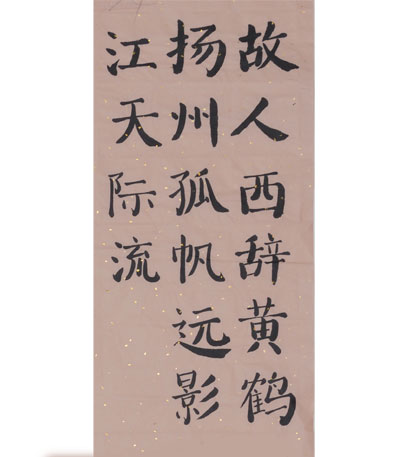 故人西辞黄鹤
扬州孤帆远影
江天际流